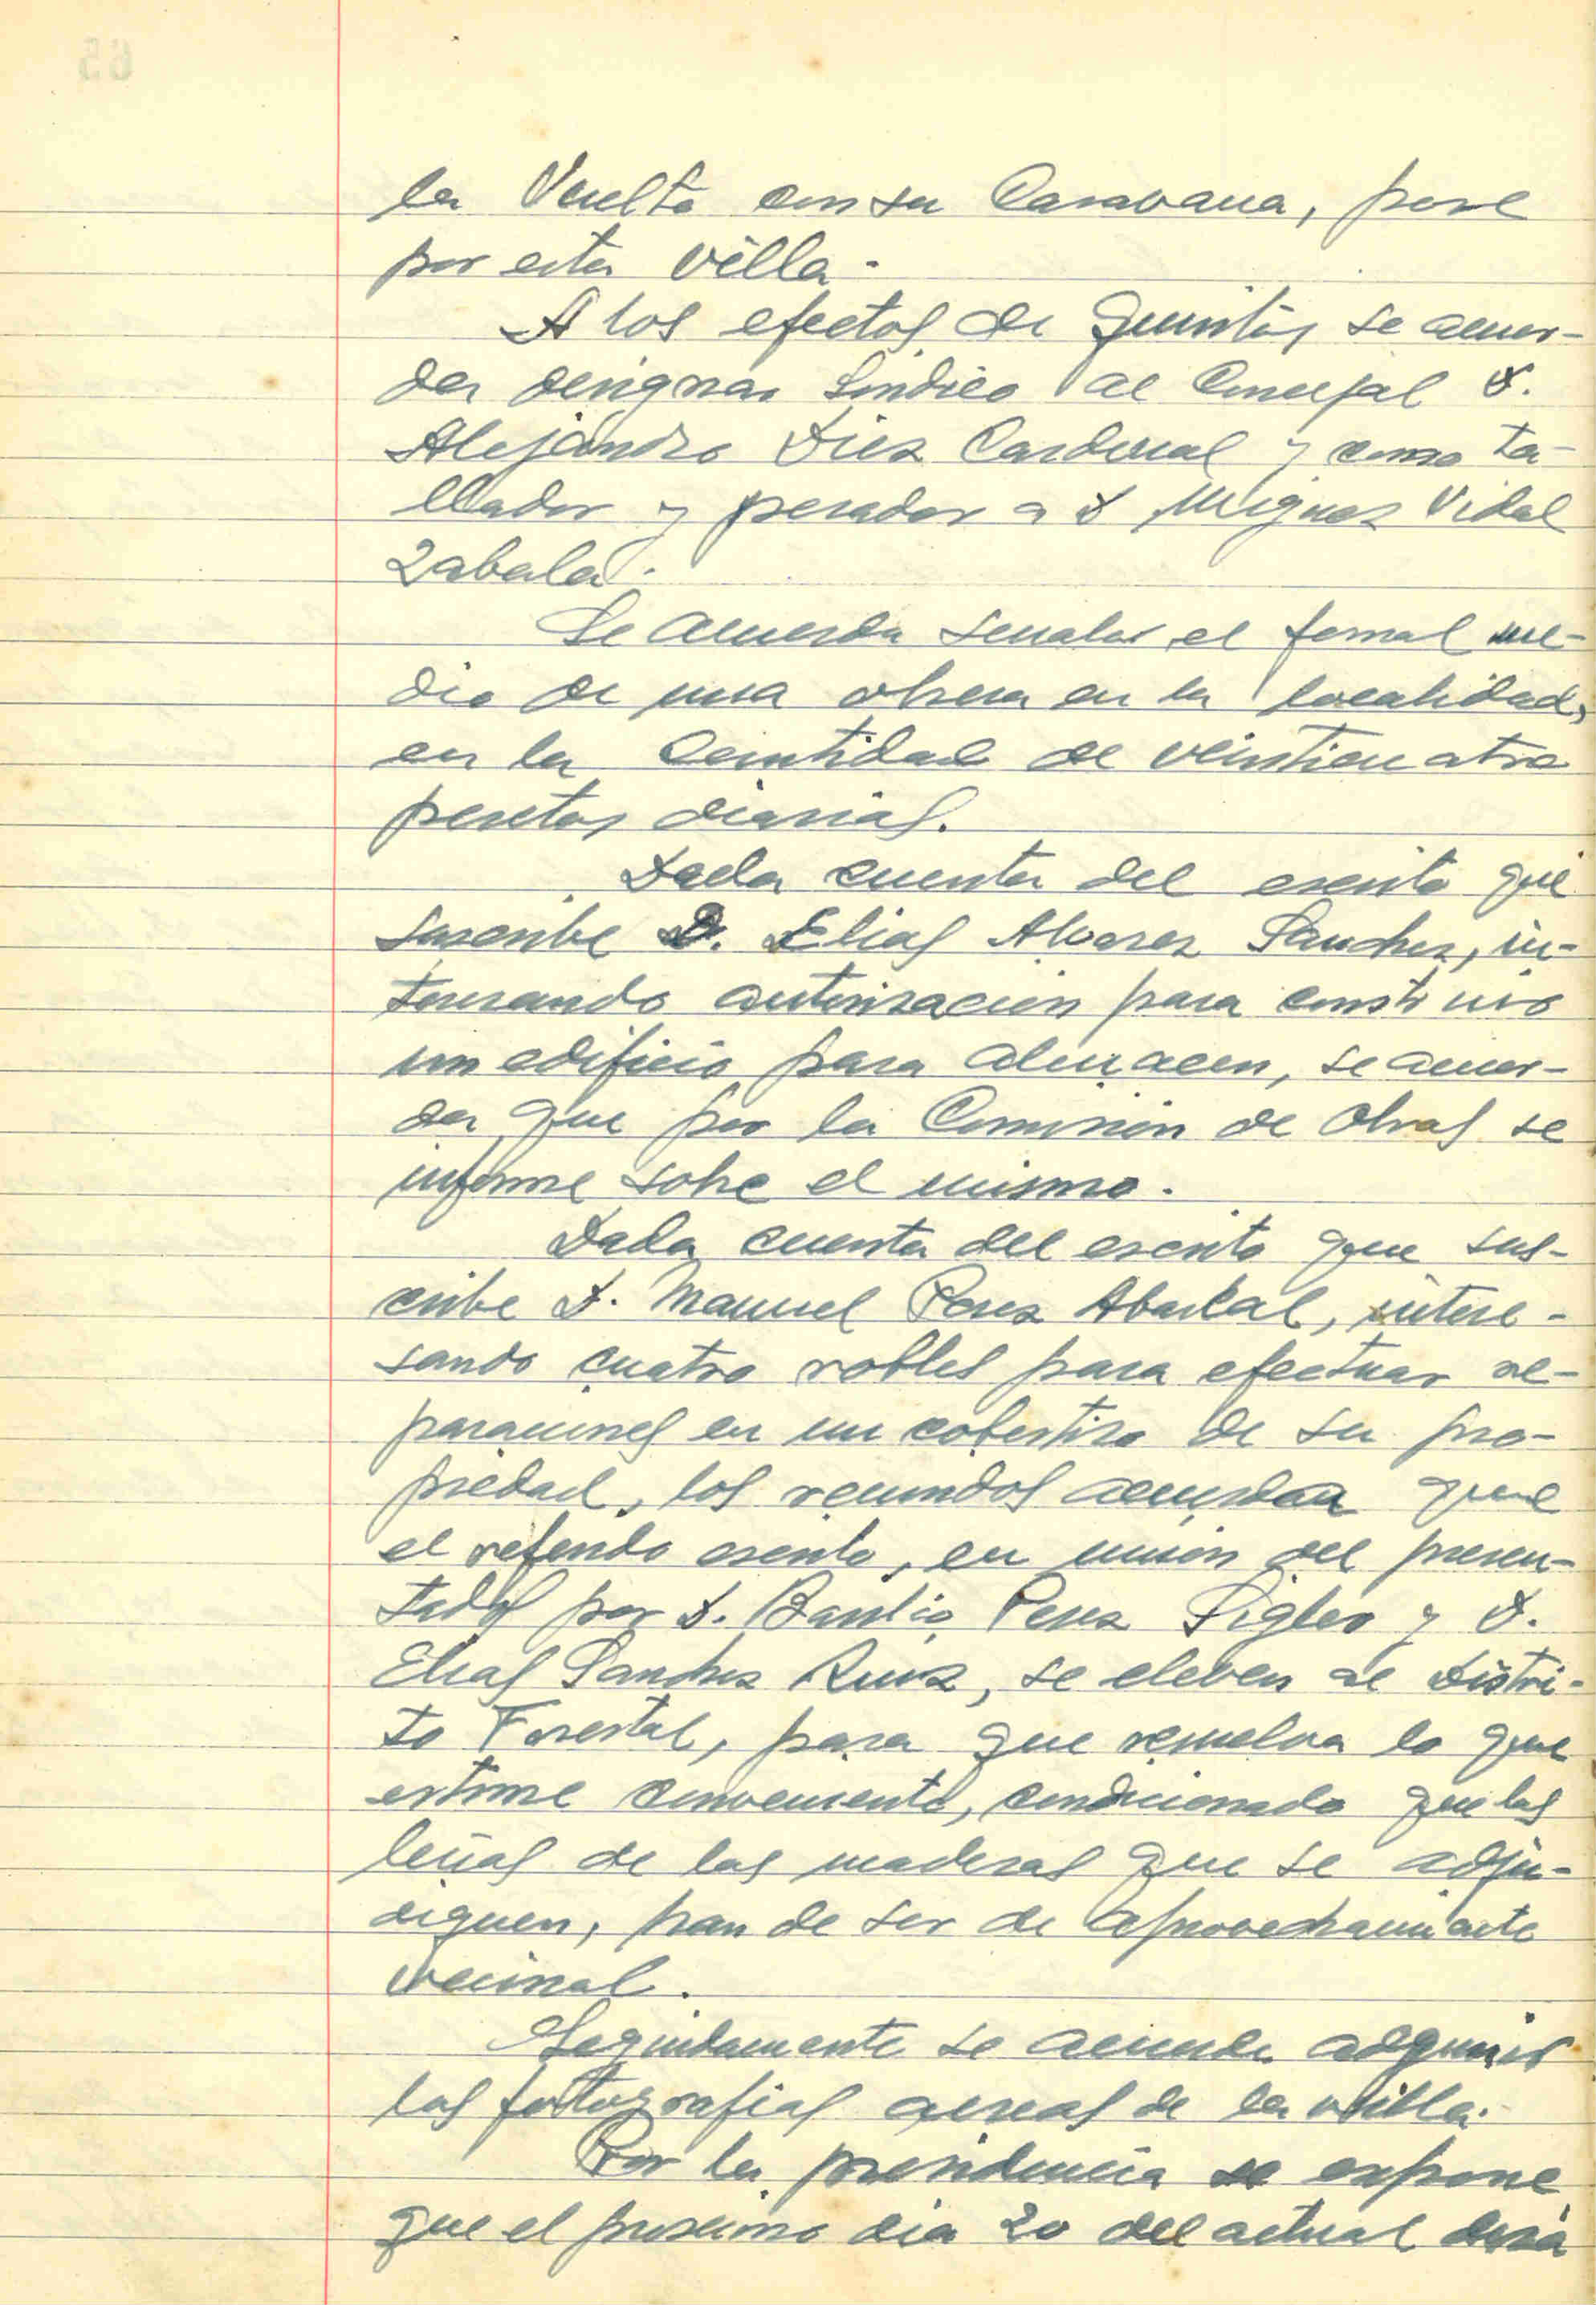 65
la Vuelta con su Caravana, pase
por esta villa.
A los efectos de Quintas se acuer-
da designar Síndico al Concejal D.
Alejandro Diez Cardenal y como ta-
llador y pesador a D. Vidal
Zabala.
Se acuerda señalar el jornal me-
dio de una obrera en la localidad,
en la cantidad de veinticuatro
pesetas diarias.
Dada cuenta del escrito que
suscribe D. Elias Alvarez Sanchez, in-
teresando autorizacion para construir
un edificio para almacen, se acuer-
da que por la Comision de Obras se
informe sobre el mismo.
Dada cuenta del escrito que sus-
cribe D. Manuel Perez Abascal, intere-
sando cuatro robles para efectuar re-
paraciones en un cobertizo de su pro-
piedad, los reunidos acuerdan que
el referido escrito, en union del presen-
tados por D. Basilio Perez y D.
Elias Sanchez Ruiz, se eleven al Distri-
to Forestal, para que resuelva lo que
estime conveniente, condicionado que las
leñas de las maderas que se adju-
diquen, han de ser de aprovechamiento
vecinal.
Seguidamente se acuerda adquirir
las fotografias aereas de la villa.
Por la presidencia se expone
que el proximo dia 20 del actual